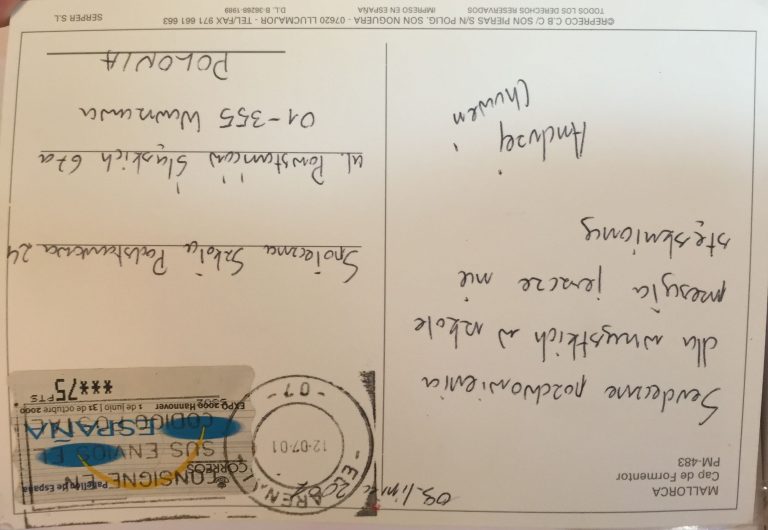 MALLORCA
Cap de Formentor
PM-483
Serdeczne pozdrowienia
dla wszystkich w szkole
przesyła jeszcze nie
stęskniony
Andrzej
09. lipiec
12-07-01
-07-
CONSIGNE EN
SUS ENVIOS EL
CODIGO
Pabellón de España
CORREOS
ESPAÑA
EXPO 2000 Hannover 1 de junio | 31 de octubre 2000
***75 PTS
Społeczna Szkoła Podstawowa 24
ul. Powstańców Śląskich 67a
01-355 Warszawa
POLONIA
©REPRECO C.B C/ SON PIERAS S/N POLIG. SON NOGUERA - 07620 LLUCMAJOR - TEL/FAX 971 661 663
TODOS LOS DERECHOS RESERVADOS IMPRESO EN ESPAÑA D.L. B-36268-1989 SERPER S.L